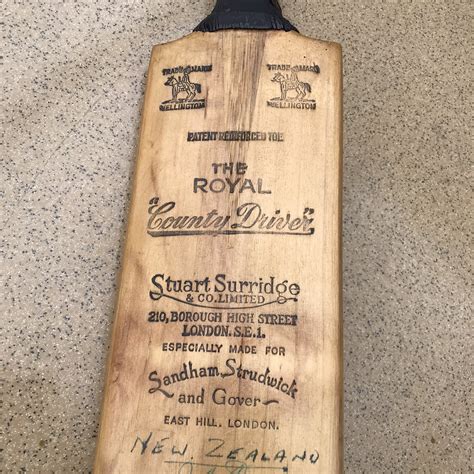 TRADE MARK TRADE MARK
WELLINGTON WELLINGTON
PATENT REINFORCED TOE
THE
ROYAL
"County Driver"
Stuart Surridge
& CO. LIMITED
210, BOROUGH HIGH STREET
LONDON. S.E.1.
ESPECIALLY MADE FOR
Sandham, Strudwick
and Gover
EAST HILL. LONDON.
NEW ZEALAND